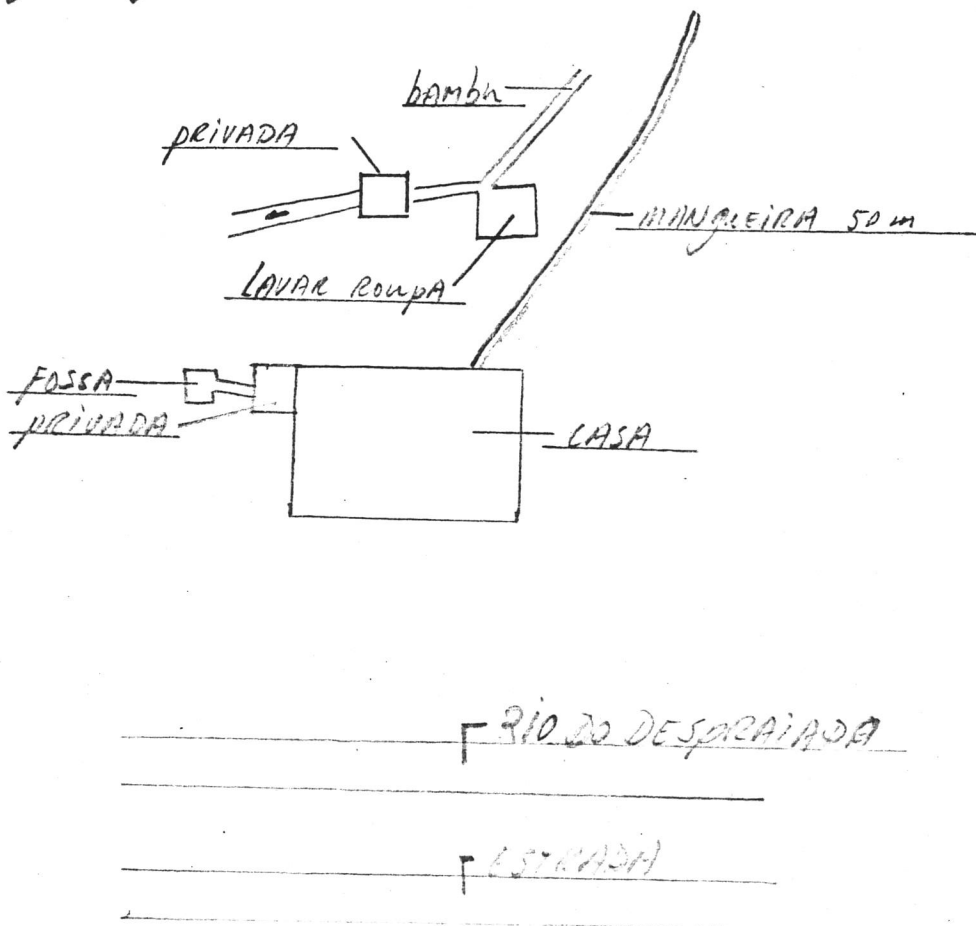 bAMbu
PRIVADA
MANGUEIRA 50 m
LAVAR ROUPA
FOSSA
PRIVADA
CASA
RIO DO DESPRAIADA
ESTRADA